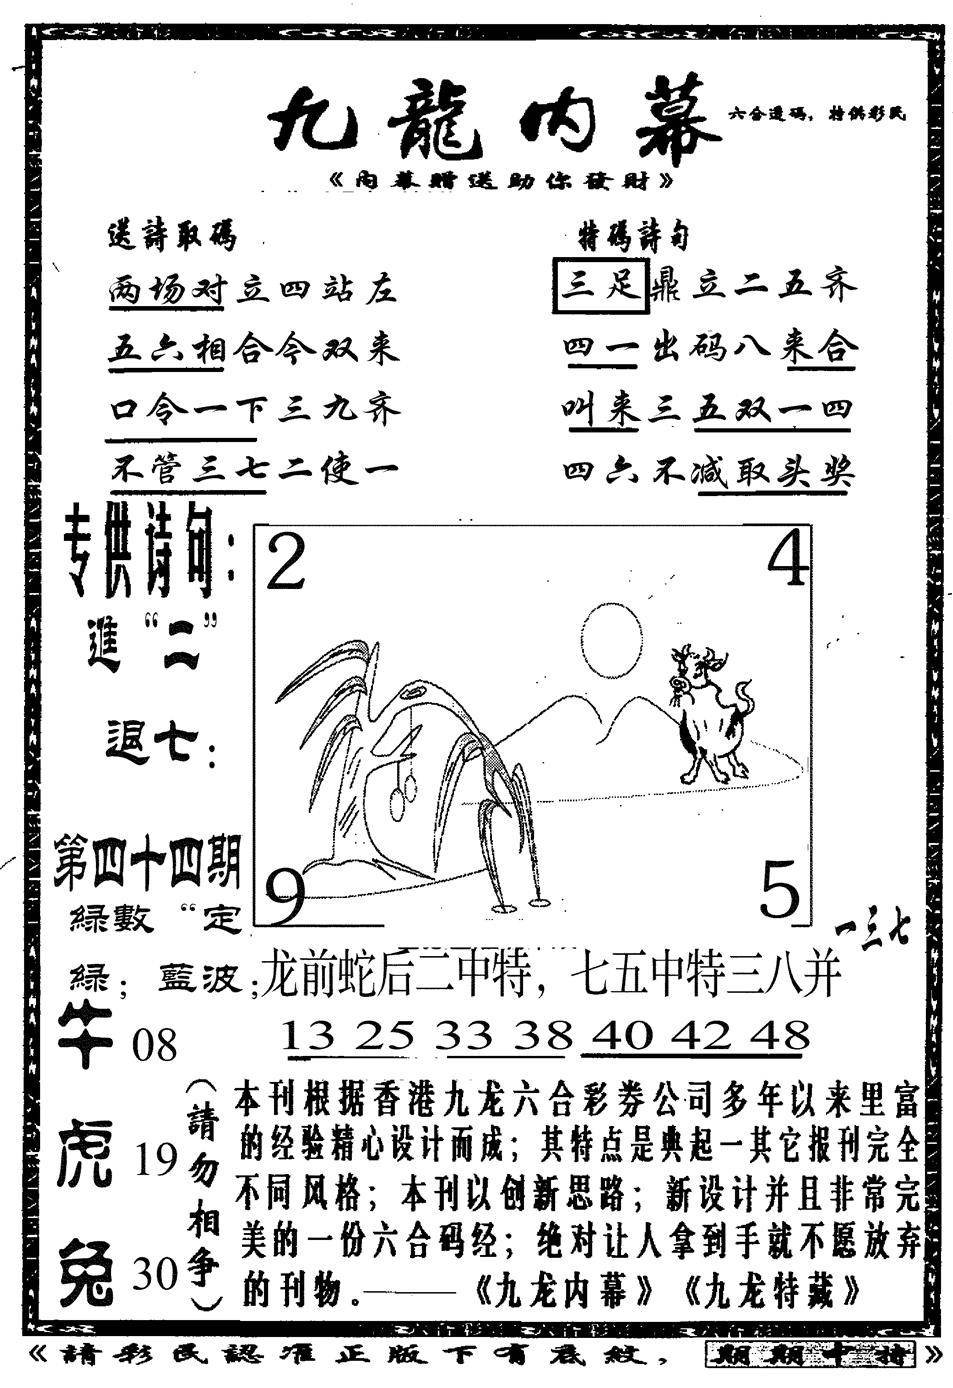 九龍内幕
六合透码，特供彩民
《内幕贈送助你發財》
送詩取碼
两场对立四站左
五六相合今双来
口令一下三九齐
不管三七二使一
特碼詩句
三足鼎立二五齐
四一出码八来合
叫来三五双一四
四六不减取头奖
专供诗句：
進“二”
退七：
第四十四期
緑數“定
緑；藍波；
2
4
9
5
一三七
龙前蛇后二中特，七五中特三八并
13 25 33 38 40 42 48
牛 08
虎 19
兔 30
（請勿相争）
本刊根据香港九龙六合彩券公司多年以来里富
的经验精心设计而成；其特点是典起一其它报刊完全
不同风格；本刊以创新思路；新设计并且非常完
美的一份六合码经；绝对让人拿到手就不愿放弃
的刊物。——《九龙内幕》《九龙特藏》
《請彩民認准正版下有底紋，期期中特》